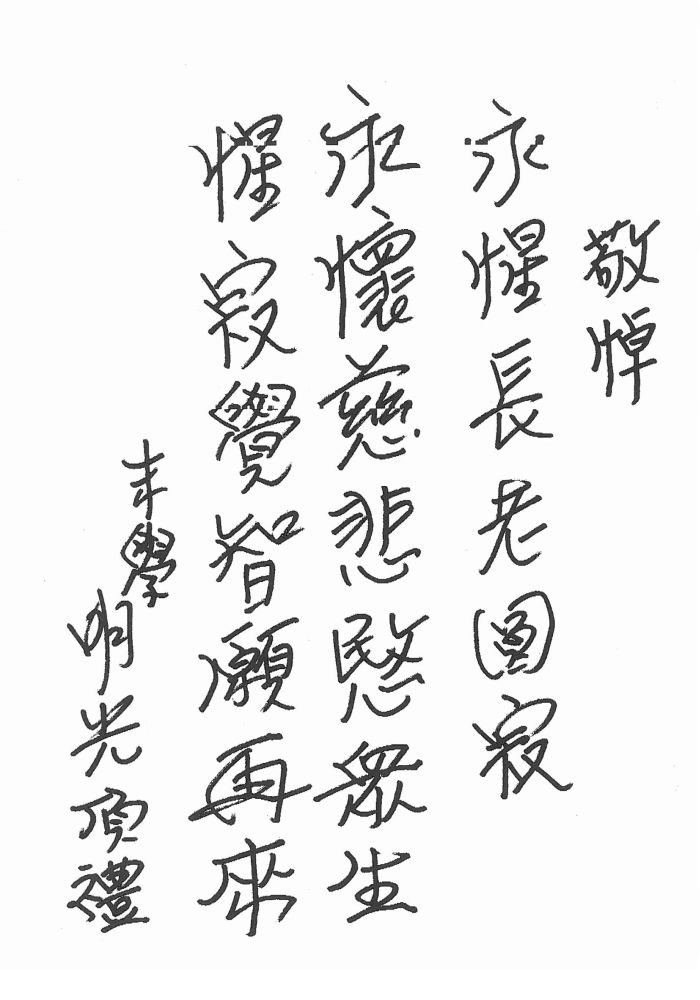 敬悼
永惺長老圓寂
永懷慈悲愍眾生
惺寂覺智願再來
末學
明光頂禮